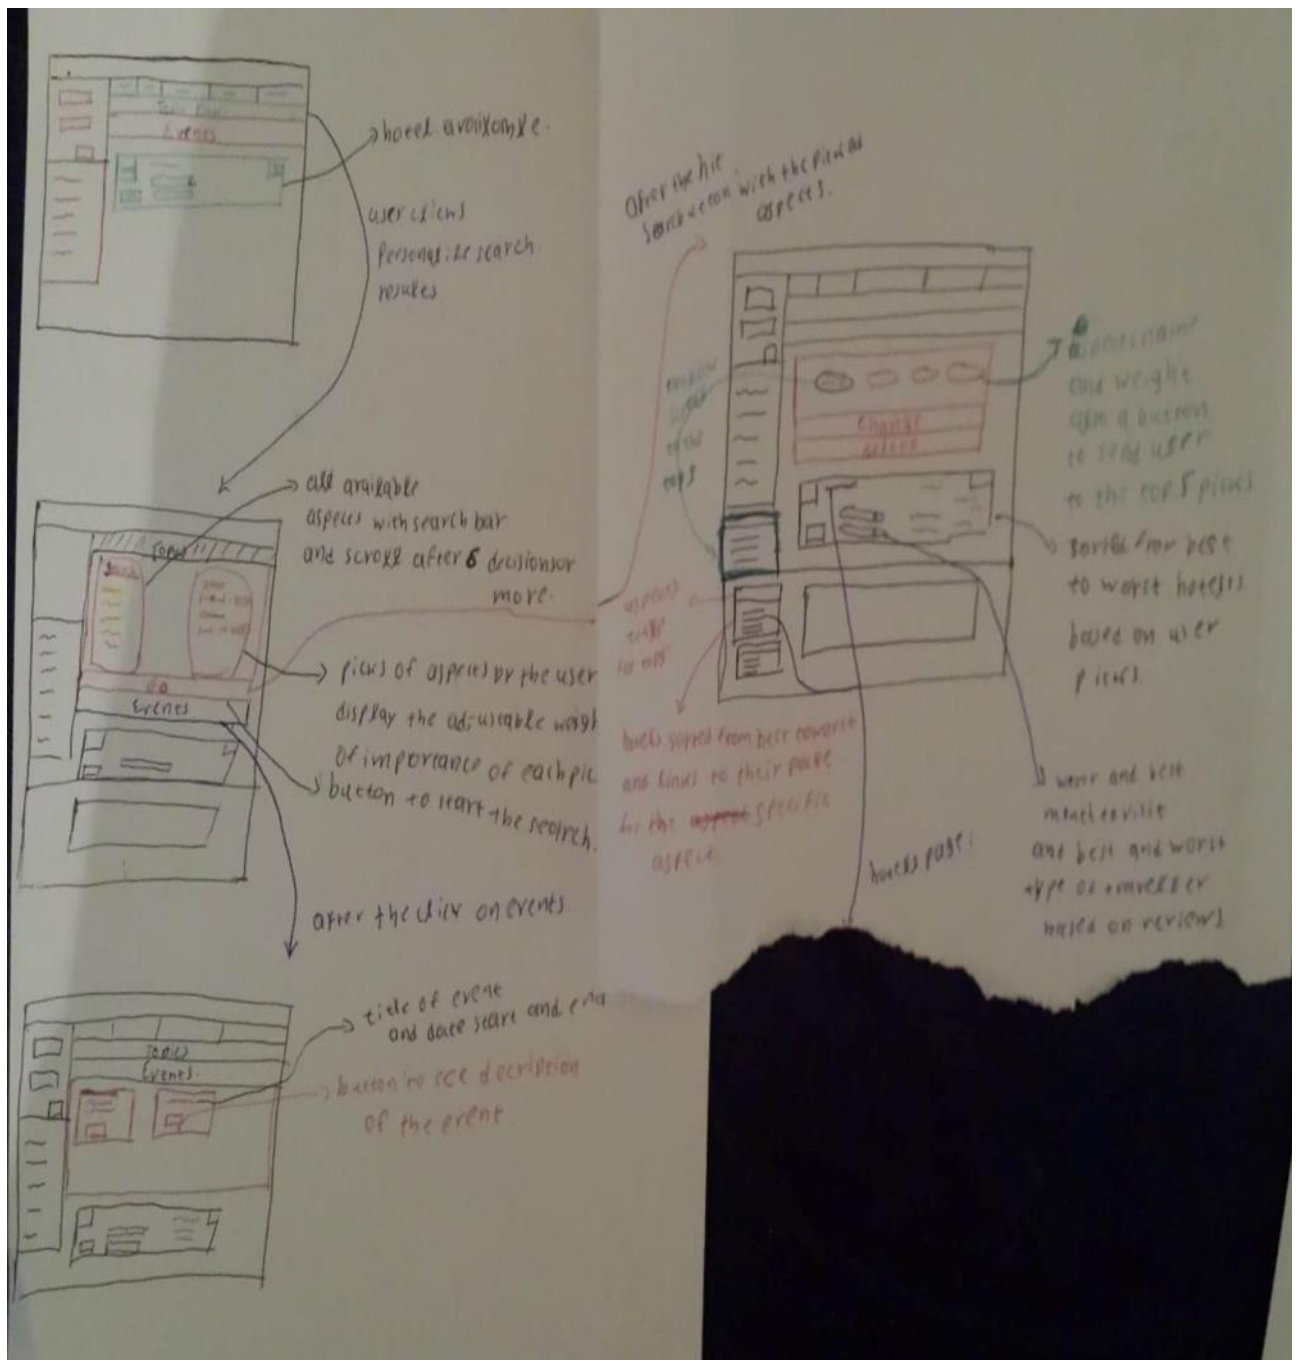 Events
hotel available.
user clicks
Personalize search
results
all available
aspects with search bar
and scroll after 6 decisions or
more.
Topics
picks of aspects by the user
display the adjustable weigh
of importance of each pic
button to start the search.
Go
Events
after the click on events.
title of event
and date start and end
button to see decription
of the event.
Topics
Events.
after the hit
search button with the picked
aspects.
aspects name
and weight
a button
to send user
to the top 5 picks
Change
sorted from best
to worst hotels
based on user
picks.
top 5
aspects
for top 5
hotels sorted from best to worst
and links to their page
for the specific
aspect.
hotels page.
worst and best
month to visit
and best and worst
type of traveller
based on reviews.